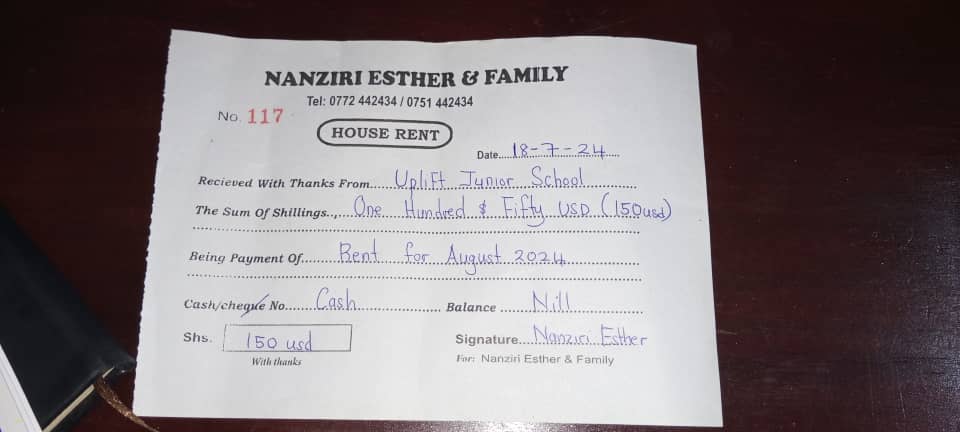 NANZIRI ESTHER & FAMILY
Tel: 0772 442434 / 0751 442434
No. 117
HOUSE RENT
Date....18-7-24....
Recieved With Thanks From.....Uplift Junior School.....
The Sum Of Shillings.....One Hundred & Fifty USD (150usd)
Being Payment Of.....Rent for August 2024.....
Cash/cheque No.....Cash..... Balance.....Nill.....
Shs. 150 usd Signature....Nanziri Esther
With thanks For: Nanziri Esther & Family